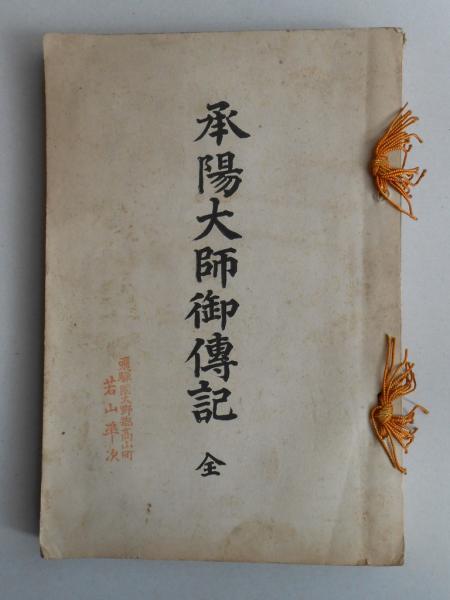 承陽大師御傳記 全
飛驒國大野郡高山町
若山準次